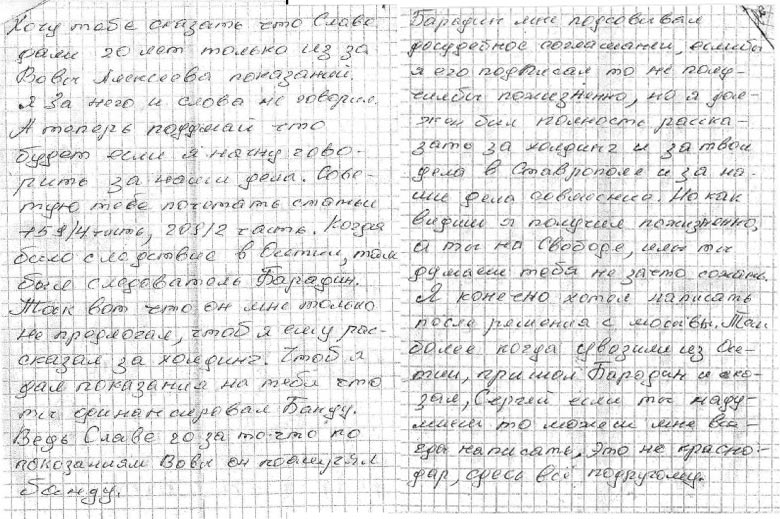 Хочу тебе сказать что Славе
дали 20 лет только из за
Вовы Алексеева показаний.
Я За него и слова не говорил.
А теперь подумай что
будет если я начну гово-
рить за наши дела. Сове-
тую тебе почетать статьи
159/4 часть, 209/2 часть. Когда
было следствие в Осетии, там
был следователь Барадин.
Так вот что он мне только
не предлогал, чтоб я ему рас-
сказал за холдинг. Чтоб я
дал показания на тебя что
ты финансировал Банду.
Ведь Славе 20 за то-что по
показаниям Вовы он
банду.
Барадин мне подсовывал
досудебное соглашении, еслибы
я его подписал то не полу-
чилбы пожизнено, но я дол-
жен был полность расска-
зать за холдинг и за твои
дела в Ставрополе и за на-
ши дела совмесные. Но как
видиш я получил пожизнено,
а ты на Свободе, или ты
думаеш тебя не зачто сожать.
Я конечно хотел написать
после решения с москвы. Тем
более когда увозили из Осе-
тии, пришол Бародин и ска-
зал, Сергей если ты наду-
маеш то можеш мне все-
гда написать. Это не красно-
дар, сдесь всё подругому.